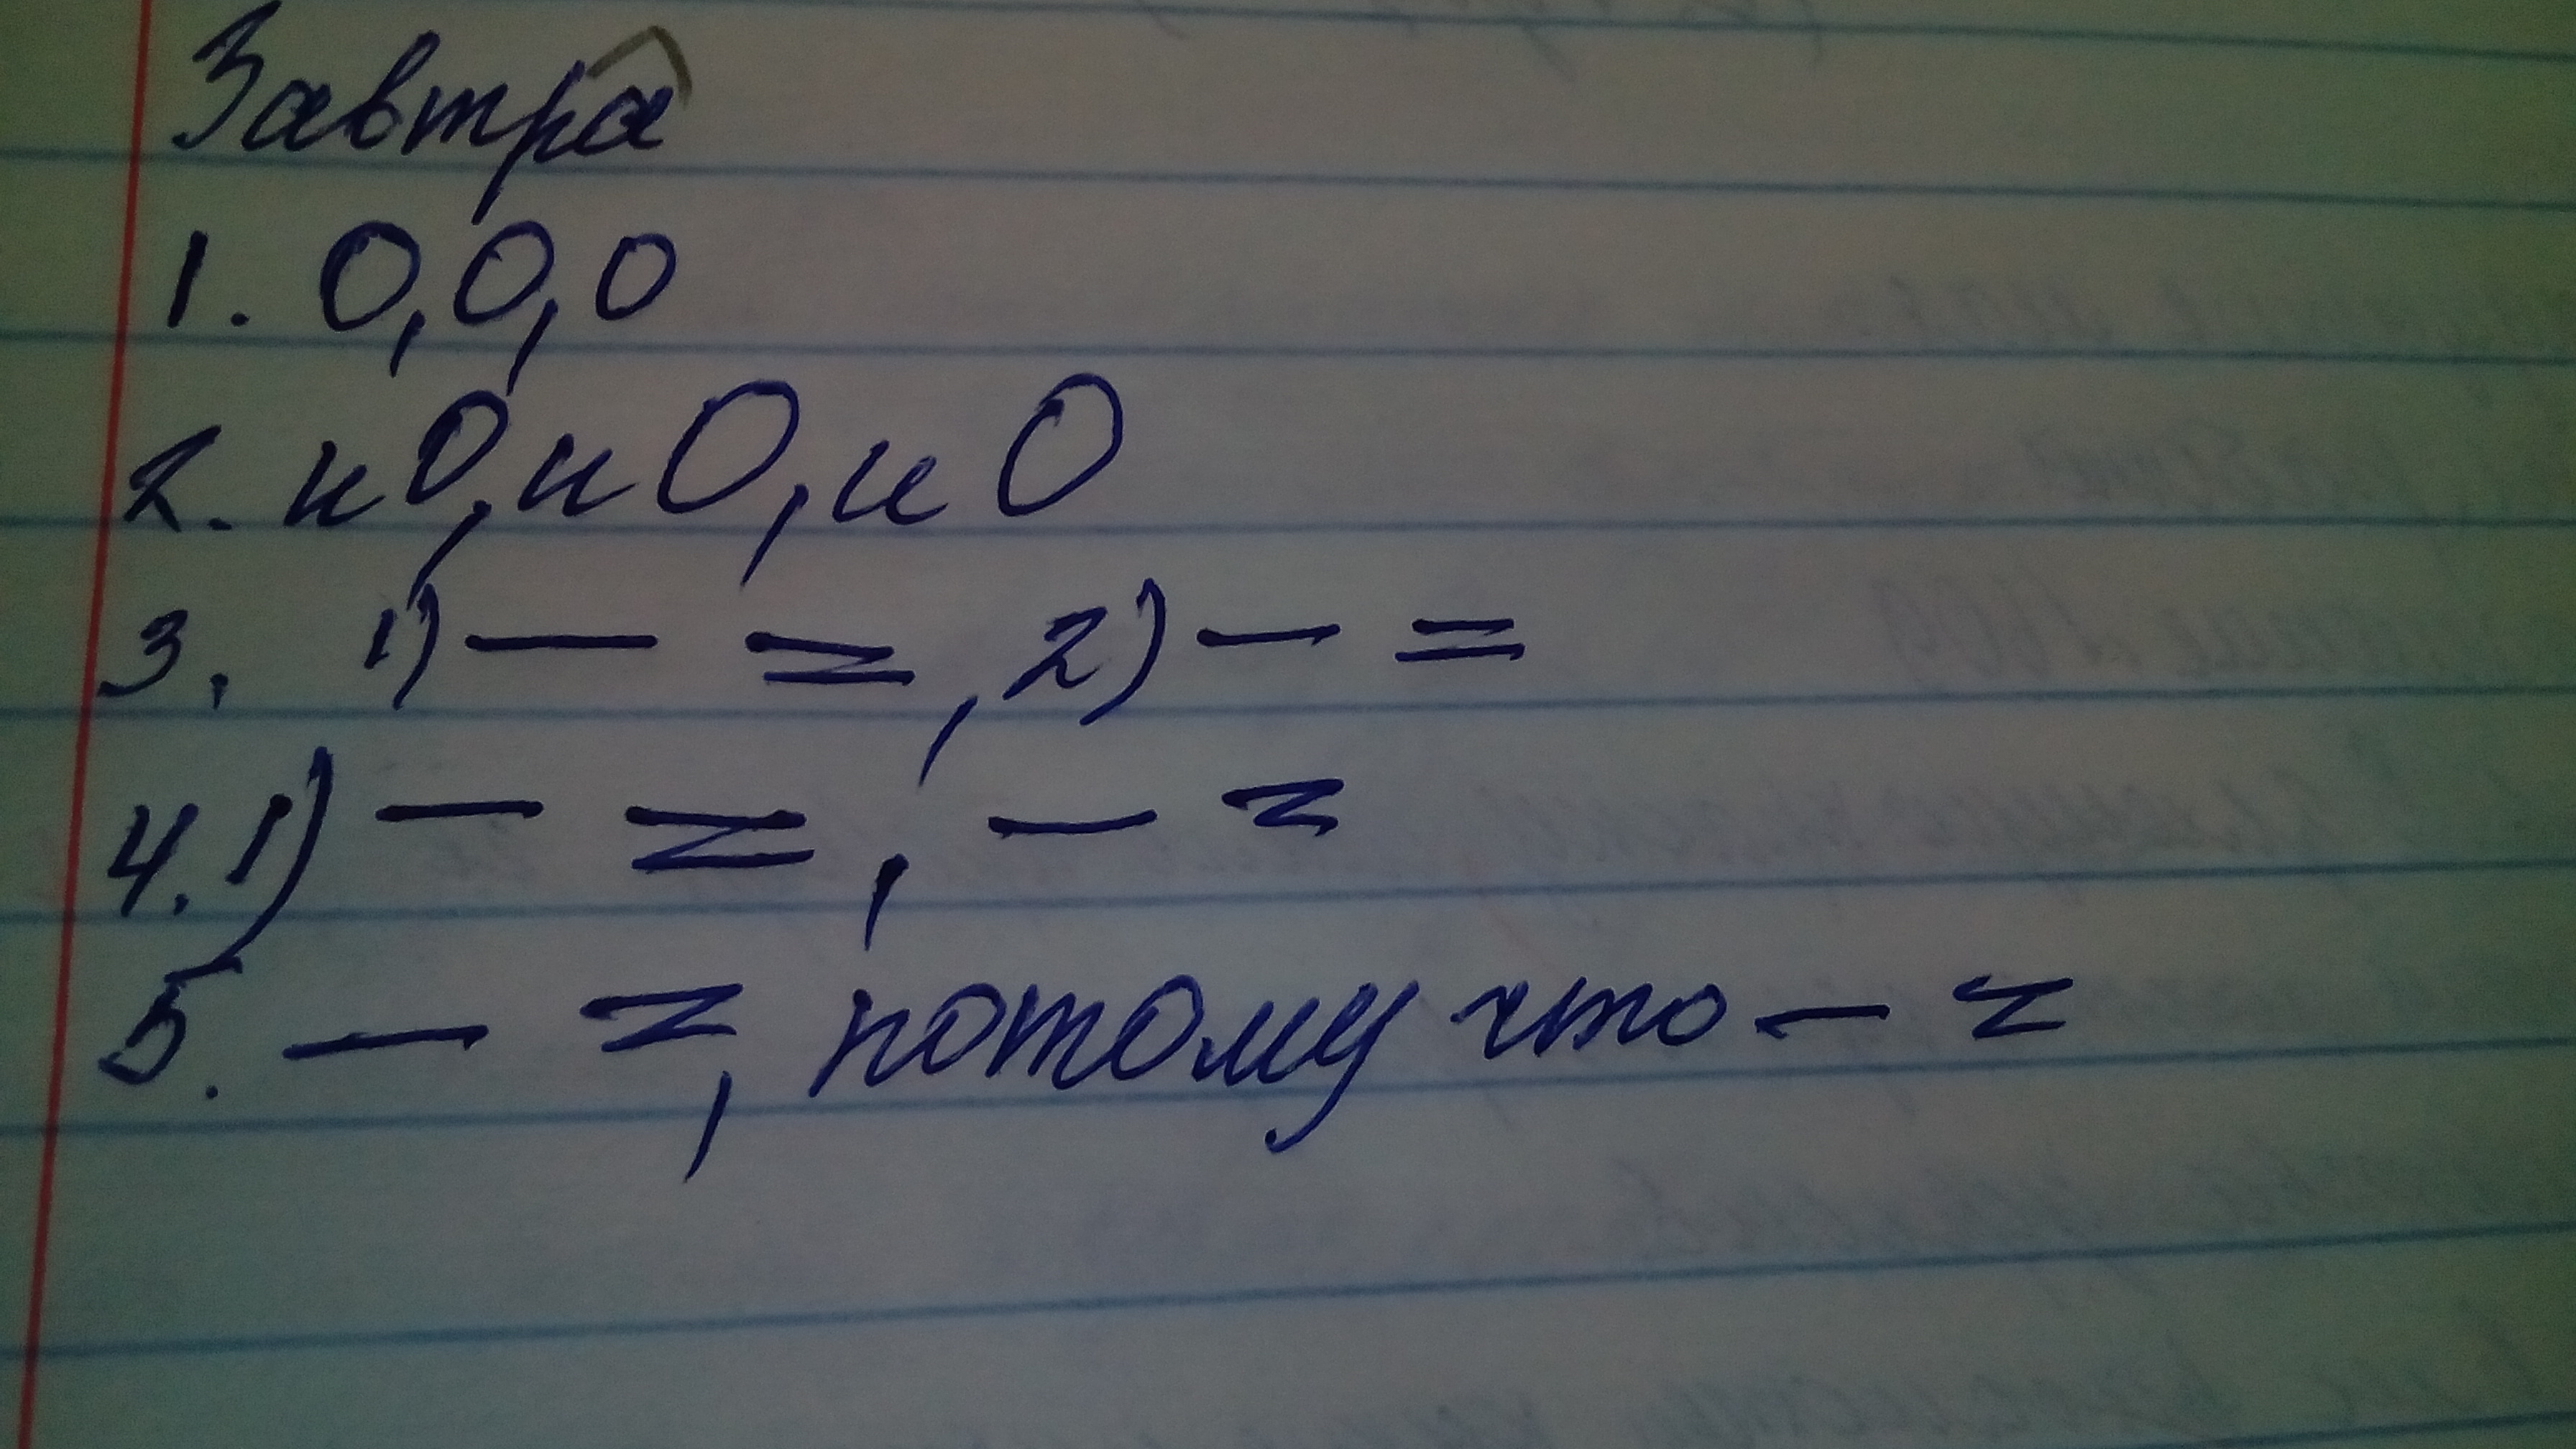 Завтра
1. О, О, О
2. и О, и О, и О
3. 1) — =, 2) — =
4. 1) — =, — =
5. — =, потому что — =